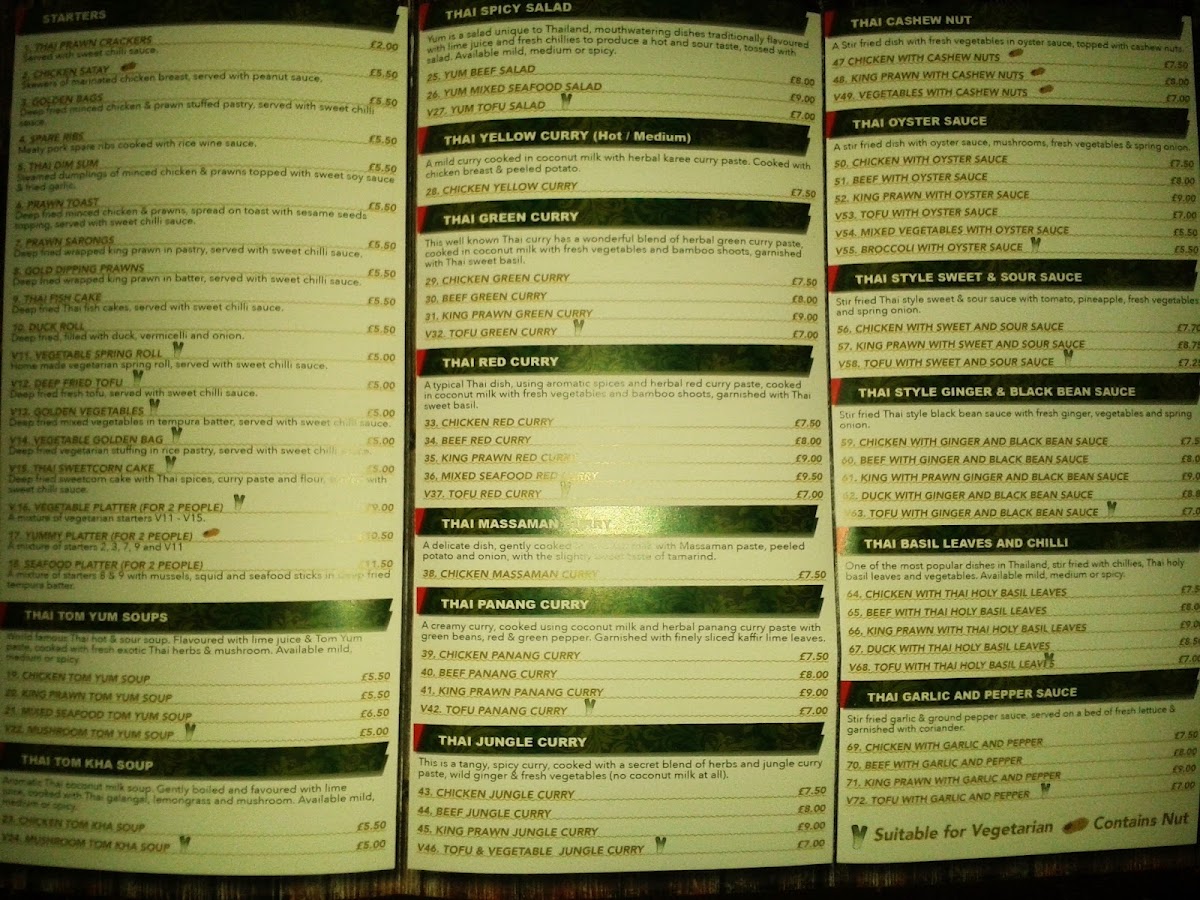 STARTERS
1. THAI PRAWN CRACKERS £2.00
Served with sweet chilli sauce.
2. CHICKEN SATAY £5.50
Skewers of marinated chicken breast, served with peanut sauce.
3. GOLDEN BAGS £5.50
Deep fried minced chicken & prawn stuffed pastry, served with sweet chilli
sauce.
4. SPARE RIBS £5.50
Meaty pork spare ribs cooked with rice wine sauce.
5. THAI DIM SUM £5.50
Steamed dumplings of minced chicken & prawns topped with sweet soy sauce
& fried garlic.
6. PRAWN TOAST £5.50
Deep fried minced chicken & prawns, spread on toast with sesame seeds
topping, served with sweet chilli sauce.
7. PRAWN SARONGS £5.50
Deep fried wrapped king prawn in pastry, served with sweet chilli sauce.
8. GOLD DIPPING PRAWNS £5.50
Deep fried wrapped king prawn in batter, served with sweet chilli sauce.
9. THAI FISH CAKE £5.50
Deep fried Thai fish cakes, served with sweet chilli sauce.
10. DUCK ROLL £5.50
Deep fried, filled with duck, vermicelli and onion.
V11. VEGETABLE SPRING ROLL £5.00
Home made vegetarian spring roll, served with sweet chilli sauce.
V12. DEEP FRIED TOFU £5.00
Deep fried fresh tofu, served with sweet chilli sauce.
V13. GOLDEN VEGETABLES £5.00
Deep fried mixed vegetables in tempura batter, served with sweet chilli sauce.
V14. VEGETABLE GOLDEN BAG £5.00
Deep fried vegetarian stuffing in rice pastry, served with sweet chilli sauce.
V15. THAI SWEETCORN CAKE £5.00
Deep fried sweetcorn cake with Thai spices, curry paste and flour, with
sweet chilli sauce.
V16. VEGETABLE PLATTER (FOR 2 PEOPLE) £9.00
A mixture of vegetarian starters V11 - V15.
17. YUMMY PLATTER (FOR 2 PEOPLE) £10.50
A mixture of starters 2, 3, 7, 9 and V11
18. SEAFOOD PLATTER (FOR 2 PEOPLE) £11.50
A mixture of starters 8 & 9 with mussels, squid and seafood sticks in deep fried
tempura batter.
THAI TOM YUM SOUPS
World famous Thai hot & sour soup. Flavoured with lime juice & Tom Yum
paste, cooked with fresh exotic Thai herbs & mushroom. Available mild,
medium or spicy.
19. CHICKEN TOM YUM SOUP £5.50
20. KING PRAWN TOM YUM SOUP £5.50
21. MIXED SEAFOOD TOM YUM SOUP £6.50
V22. MUSHROOM TOM YUM SOUP £5.00
THAI TOM KHA SOUP
Aromatic Thai coconut milk soup. Gently boiled and favoured with lime
juice, cooked with Thai galangal, lemongrass and mushroom. Available mild,
medium or spicy.
23. CHICKEN TOM KHA SOUP £5.50
V24. MUSHROOM TOM KHA SOUP £5.00
THAI SPICY SALAD
Yum is a salad unique to Thailand, mouthwatering dishes traditionally flavoured
with lime juice and fresh chillies to produce a hot and sour taste, tossed with
salad. Available mild, medium or spicy.
25. YUM BEEF SALAD £8.00
26. YUM MIXED SEAFOOD SALAD £9.00
V27. YUM TOFU SALAD £7.00
THAI YELLOW CURRY (Hot / Medium)
A mild curry cooked in coconut milk with herbal karee curry paste. Cooked with
chicken breast & peeled potato.
28. CHICKEN YELLOW CURRY £7.50
THAI GREEN CURRY
This well known Thai curry has a wonderful blend of herbal green curry paste,
cooked in coconut milk with fresh vegetables and bamboo shoots, garnished
with Thai sweet basil.
29. CHICKEN GREEN CURRY £7.50
30. BEEF GREEN CURRY £8.00
31. KING PRAWN GREEN CURRY £9.00
V32. TOFU GREEN CURRY £7.00
THAI RED CURRY
A typical Thai dish, using aromatic spices and herbal red curry paste, cooked
in coconut milk with fresh vegetables and bamboo shoots, garnished with Thai
sweet basil.
33. CHICKEN RED CURRY £7.50
34. BEEF RED CURRY £8.00
35. KING PRAWN RED CURRY £9.00
36. MIXED SEAFOOD RED CURRY £9.50
V37. TOFU RED CURRY £7.00
THAI MASSAMAN CURRY
A delicate dish, gently cooked milk with Massaman paste, peeled
potato and onion, with the slightly sweet taste of tamarind.
38. CHICKEN MASSAMAN CURRY £7.50
THAI PANANG CURRY
A creamy curry, cooked using coconut milk and herbal panang curry paste with
green beans, red & green pepper. Garnished with finely sliced kaffir lime leaves.
39. CHICKEN PANANG CURRY £7.50
40. BEEF PANANG CURRY £8.00
41. KING PRAWN PANANG CURRY £9.00
V42. TOFU PANANG CURRY £7.00
THAI JUNGLE CURRY
This is a tangy, spicy curry, cooked with a secret blend of herbs and jungle curry
paste, wild ginger & fresh vegetables (no coconut milk at all).
43. CHICKEN JUNGLE CURRY £7.50
44. BEEF JUNGLE CURRY £8.00
45. KING PRAWN JUNGLE CURRY £9.00
V46. TOFU & VEGETABLE JUNGLE CURRY £7.00
THAI CASHEW NUT
A Stir fried dish with fresh vegetables in oyster sauce, topped with cashew nuts.
47 CHICKEN WITH CASHEW NUTS £7.50
48. KING PRAWN WITH CASHEW NUTS £8.00
V49. VEGETABLES WITH CASHEW NUTS £7.00
THAI OYSTER SAUCE
A stir fried dish with oyster sauce, mushrooms, fresh vegetables & spring onion.
50. CHICKEN WITH OYSTER SAUCE £7.50
51. BEEF WITH OYSTER SAUCE £8.00
52. KING PRAWN WITH OYSTER SAUCE £9.00
V53. TOFU WITH OYSTER SAUCE £7.00
V54. MIXED VEGETABLES WITH OYSTER SAUCE £5.50
V55. BROCCOLI WITH OYSTER SAUCE £5.50
THAI STYLE SWEET & SOUR SAUCE
Stir fried Thai style sweet & sour sauce with tomato, pineapple, fresh vegetables
and spring onion.
56. CHICKEN WITH SWEET AND SOUR SAUCE £7.70
57. KING PRAWN WITH SWEET AND SOUR SAUCE £8.75
V58. TOFU WITH SWEET AND SOUR SAUCE £7.20
THAI STYLE GINGER & BLACK BEAN SAUCE
Stir fried Thai style black bean sauce with fresh ginger, vegetables and spring
onion.
59. CHICKEN WITH GINGER AND BLACK BEAN SAUCE £7.5
60. BEEF WITH GINGER AND BLACK BEAN SAUCE £8.0
61. KING PRAWN WITH GINGER AND BLACK BEAN SAUCE £9.0
62. DUCK WITH GINGER AND BLACK BEAN SAUCE £8.5
V63. TOFU WITH GINGER AND BLACK BEAN SAUCE £7.0
THAI BASIL LEAVES AND CHILLI
One of the most popular dishes in Thailand, stir fried with chillies, Thai holy
basil leaves and vegetables. Available mild, medium or spicy.
64. CHICKEN WITH THAI HOLY BASIL LEAVES £7.5
65. BEEF WITH THAI HOLY BASIL LEAVES £8.0
66. KING PRAWN WITH THAI HOLY BASIL LEAVES £9.0
67. DUCK WITH THAI HOLY BASIL LEAVES £8.5
V68. TOFU WITH THAI HOLY BASIL LEAVES £7.00
THAI GARLIC AND PEPPER SAUCE
Stir fried garlic & ground pepper sauce, served on a bed of fresh lettuce &
garnished with coriander.
69. CHICKEN WITH GARLIC AND PEPPER £7.50
70. BEEF WITH GARLIC AND PEPPER £8.00
71. KING PRAWN WITH GARLIC AND PEPPER £9.00
V72. TOFU WITH GARLIC AND PEPPER £7.00
Suitable for Vegetarian Contains Nut